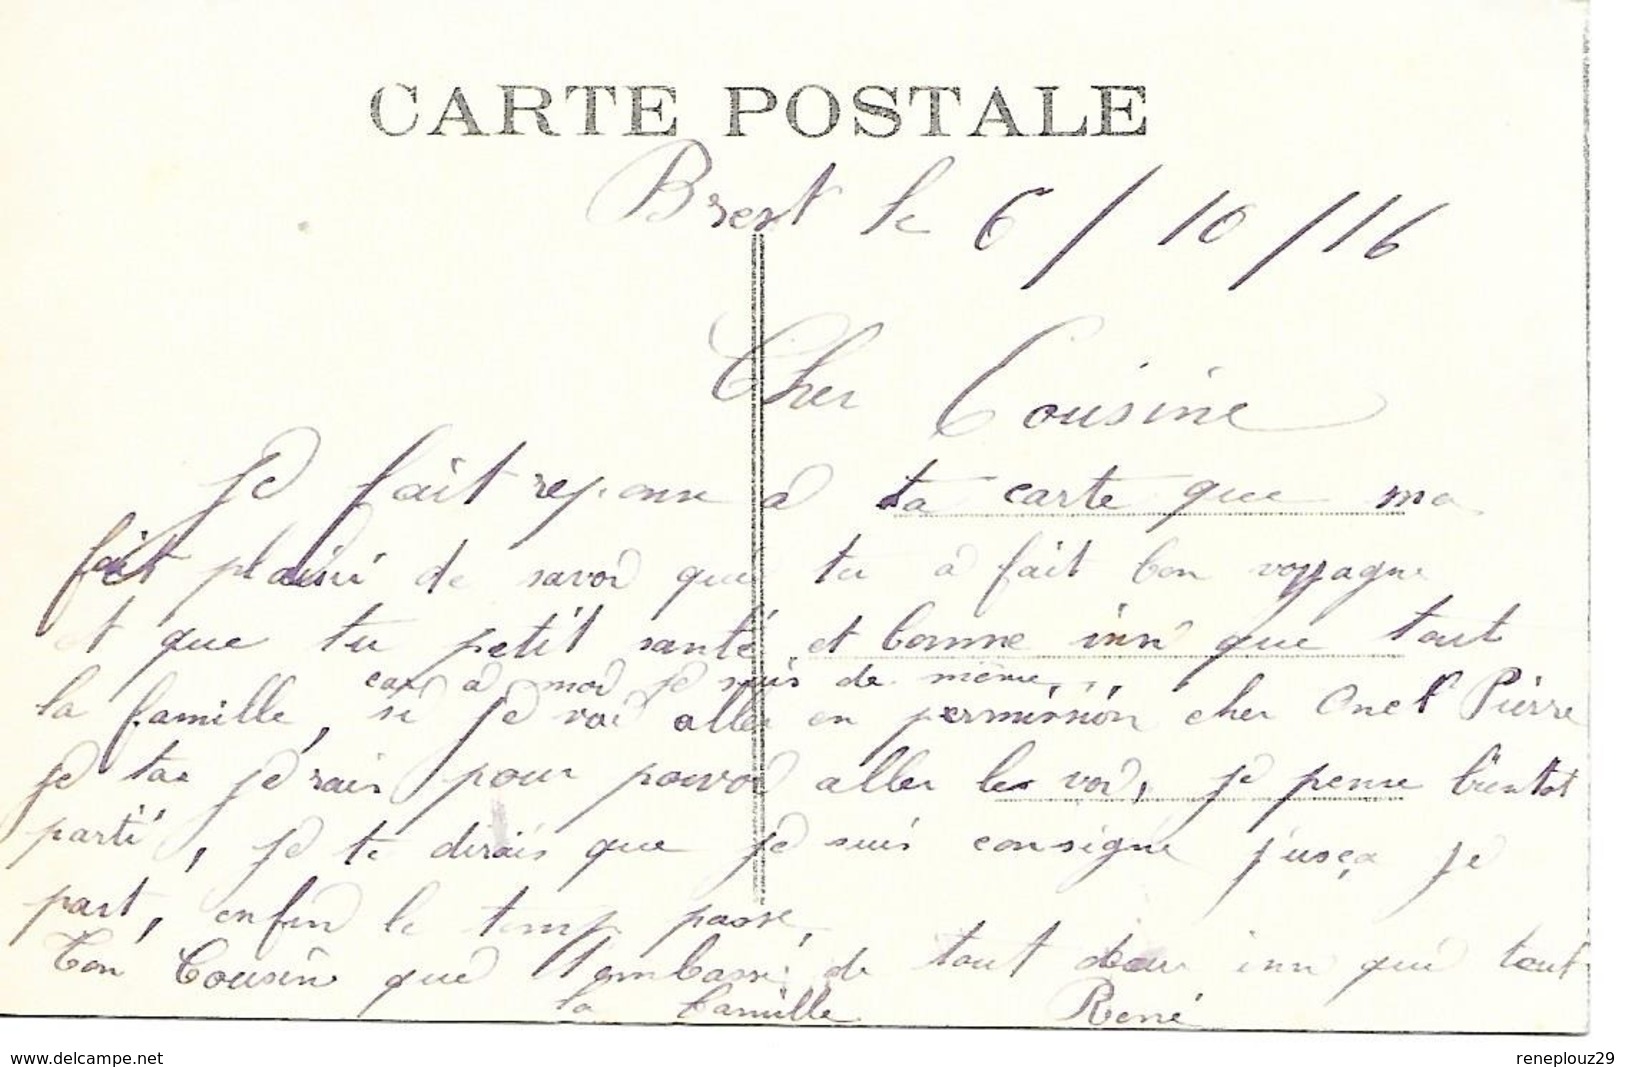 CARTE POSTALE
Brest le 6/10/16
Cher Cousine
Je fait reponse a ta carte que ma
fait plaisir de savoir que tu a fait bon voyage
et que tu petit santé et bonne inn que tout
car a moi je suis de même
la famille, si je vai aller en permission cher Oncl Pierre
je ta je rais pour pouvoir aller les voir, je pense bientot
parti, je te dirais que je suis consigne jusqa je
part, enfin le temp passe,
Ton Cousin que t'embasse de tout deu inn que tout
la famille René
www.delcampe.net
reneplouz29